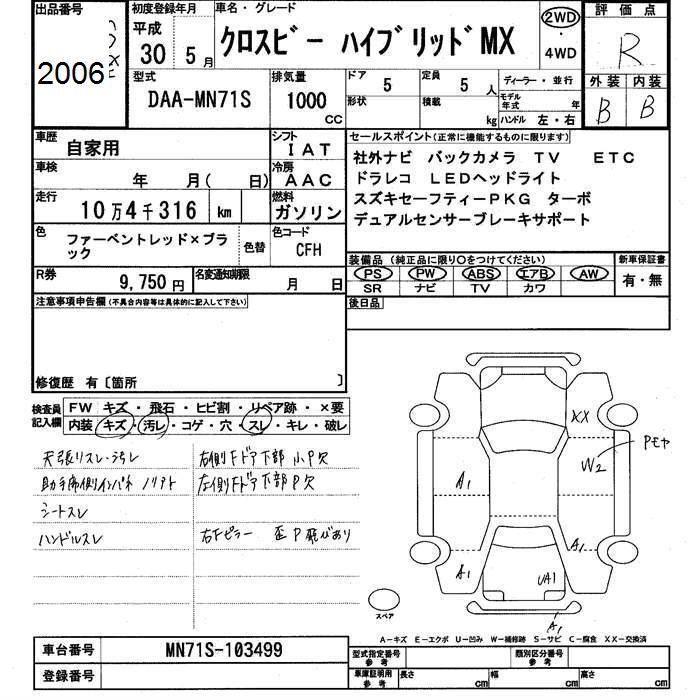 出品番号
2006
初度登録年月
平成
30 5月
車名・グレード
クロスビー ハイブリッドMX
2WD
・
4WD
評価点
R
外装 内装
B B
型式
DAA-MN71S
排気量
1000
CC
ドア
5
定員
5 人
形状
積載
kg
ディーラー・並行
モデル年式 年
ハンドル 左・右
車歴
自家用
シフト
IAT
車検
年 月( 日)
冷房
AAC
走行
10万4千316 km
燃料
ガソリン
色
ファーベントレッド×ブラック
色替
色コード
CFH
R券
9,750円
名変通知期限
月 日
セールスポイント(正常に機能するものに限ります)
社外ナビ バックカメラ TV ETC
ドラレコ LEDヘッドライト
スズキセーフティーPKG ターボ
デュアルセンサーブレーキサポート
装備品(純正品に限り○をつけてください)
PS PW ABS エアB AW
SR ナビ TV カワ
新車保証書
有・無
後日品
注意事項申告欄(不具合内容等は具体的に記入して下さい)
修復歴 有〔箇所 〕
検査員記入欄
FW キズ・飛石・ヒビ割・リペア跡・×要
内装 キズ・汚レ・コゲ・穴・スレ・キレ・破レ
天張リスレ・汚レ
助手席側インパネ ノリアト
シートスレ
ハンドルスレ
右側Fドア下部 小P欠
左側Fドア下部P欠
右Fピラー 歪P飛びあり
XX
Pモヤ
W2
A1
A1
A1
UA1
A1
スペア
A-キズ E-エクボ U-凹み W-補修跡 S-サビ C-腐食 XX-交換済
車台番号
MN71S-103499
登録番号
型式指定番号
参考
類別区分番号
参考
車庫証明用
参考
長さ cm
幅 cm
高さ cm